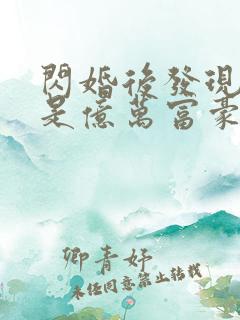 閃婚後發現
是億萬富豪
卿青妤
未經同意禁止轉載